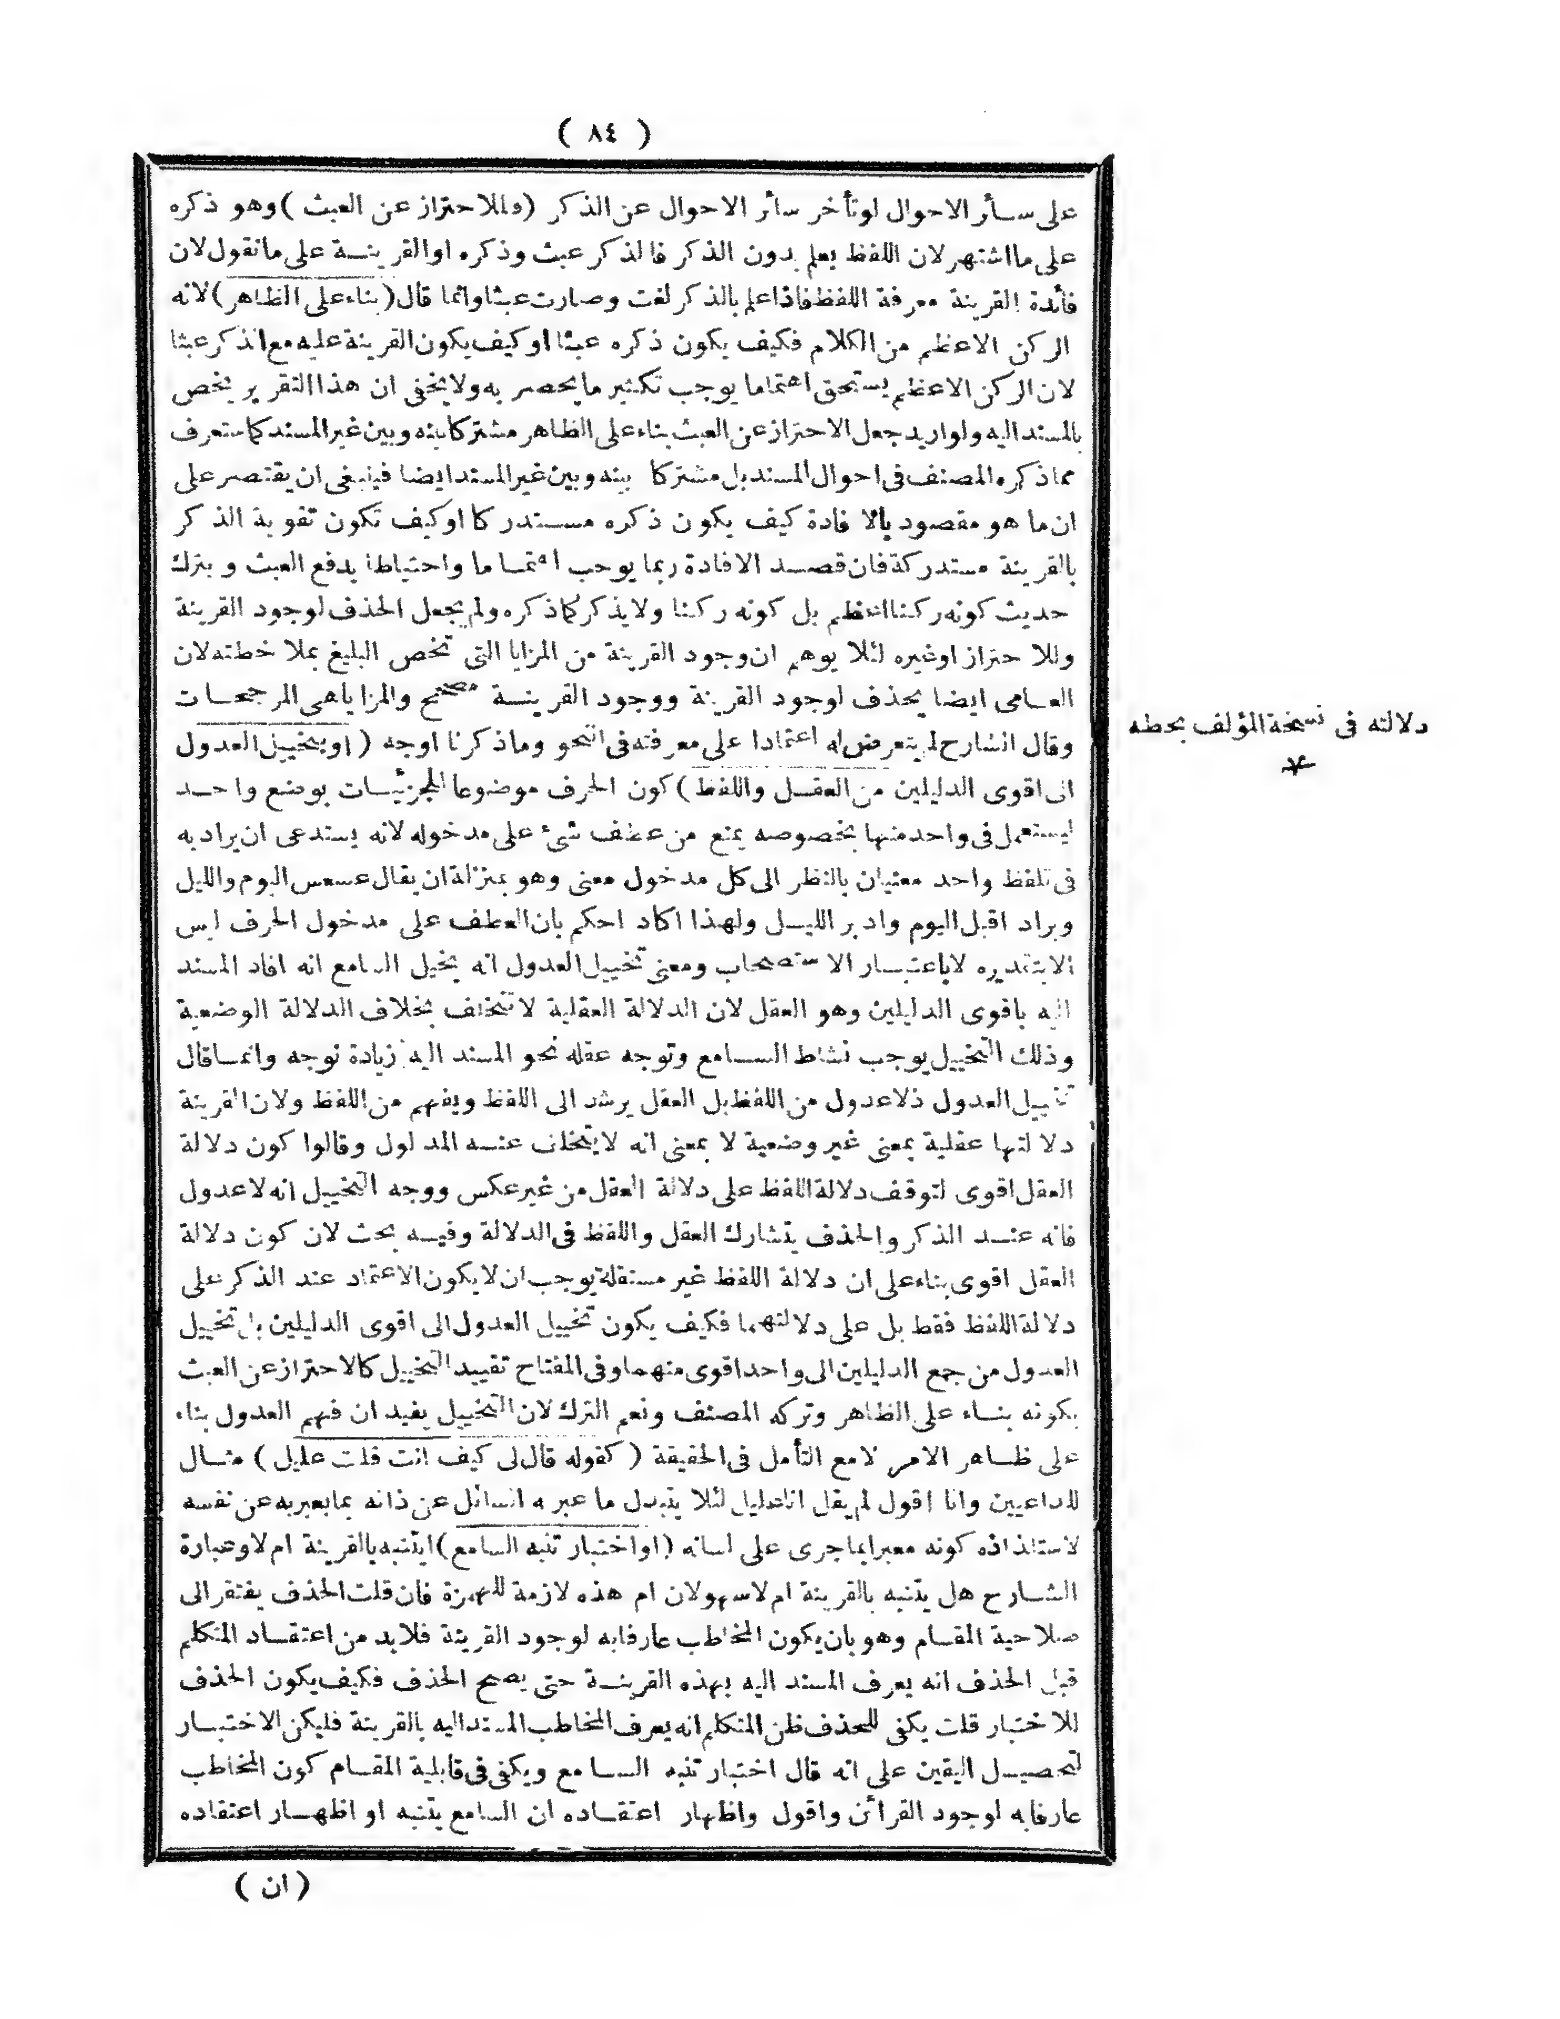 ( ٨٤ )
على سائر الاحوال لوتأخر سائر الاحوال عن الذكر (وللاحتراز عن العبث ) وهو ذكره
على مااشتهر لان اللفظ يعلم بدون الذكر فالذكر عبث وذكره اوالقرينة على مانقول لان
فائدة القرينة معرفة اللفظ فاذا علم بالذكر لغت وصارت عبثا وانما قال (بناء على الظاهر) لانه
الركن الاعظم من الكلام فكيف يكون ذكره عبثا اوكيف يكون القرينة عليه مع الذكر عبثا
لان الركن الاعظم يستحق اهتماما يوجب تكثير مايحصر به ولايخفى ان هذا التقرير يخص
بالمسند اليه ولواريد جعل الاحتراز عن العبث بناء على الظاهر مشتركا بينه وبين غير المسند كما ستعرف
مما ذكره المصنف فى احوال المسند بل مشتركا بينه وبين غير المسند ايضا فينبغى ان يقتصر على
ان ما هو مقصود بالافادة كيف يكون ذكره مستدركا اوكيف تكون تقوية الذكر
بالقرينة مستدركة فان قصد الافادة ربما يوجب اهتماما واحتياطا يدفع العبث ويترك
حديث كونه ركنا اعظم بل كونه ركنا ولايذكر كما ذكره ولم يجعل الحذف لوجود القرينة
وللاحتراز اوغيره لئلا يوهم ان وجود القرينة من المزايا التى تخص البليغ بملاحظته لان
العامى ايضا يحذف لوجود القرينة ووجود القرينة مصحح والمزايا هى المرجحات
وقال الشارح لم يتعرض له اعتمادا على معرفته فى النحو وماذكرنا اوجه ( او بتخييل العدول
الى اقوى الدليلين من العقل واللفظ ) كون الحرف موضوعا للجزئيات بوضع واحد
ليستعمل فى واحد منها بخصوصه يمنع من عطف شئ على مدخوله لانه يستدعى ان يراد به
فى تلفظ واحد معنيان بالنظر الى كل مدخول معنى وهو بمنزلة ان يقال عسعس اليوم والليل
ويراد اقبل اليوم وادبر الليل ولهذا اكاد احكم بان العطف على مدخول الحرف ليس
الابتقديره لاباعتبار الاستصحاب ومعنى تخييل العدول انه يخيل السامع انه افاد المسند
اليه باقوى الدليلين وهو العقل لان الدلالة العقلية لاتتخلف بخلاف الدلالة الوضعية
وذلك التخييل يوجب نشاط السامع وتوجه عقله نحو المسند اليه زيادة توجه وانما قال
تخييل العدول ذلاعدول من اللفظ بل العقل يرشد الى اللفظ ويفهم من اللفظ ولان القرينة
دلالتها عقلية بمعنى غير وضعية لا بمعنى انه لايتخلف عنه المدلول وقالوا كون دلالة
العقل اقوى لتوقف دلالة اللفظ على دلالة العقل من غير عكس ووجه التخييل انه لاعدول
فانه عند الذكر والحذف يتشارك العقل واللفظ فى الدلالة وفيه بحث لان كون دلالة
العقل اقوى بناء على ان دلالة اللفظ غير مستقلة يوجب ان لايكون الاعتماد عند الذكر على
دلالة اللفظ فقط بل على دلالتهما فكيف يكون تخييل العدول الى اقوى الدليلين بل تخييل
العدول من جمع الدليلين الى واحد اقوى منهما وفى المفتاح تقييد التخييل كالاحتراز عن العبث
بكونه بناء على الظاهر وتركه المصنف ونعم الترك لان التخييل يفيد ان فهم العدول بناء
على ظاهر الامر لامع التأمل فى الحقيقة ( كقوله قال لى كيف انت قلت عليل ) مثال
للداعيين وانا اقول لم يقل انا عليل لئلا يتبدل ما عبر به السائل عن ذاته بما يعبر به عن نفسه
لاستلذاذه كونه معبرا بما جرى على لسانه (اواختبار تنبه السامع) ايتنبه بالقرينة ام لا وعبارة
الشارح هل يتنبه بالقرينة ام لا سهو لان ام هذه لازمة للهمزة فان قلت الحذف يفتقر الى
صلاحية المقام وهو بان يكون المخاطب عارفا به لوجود القرينة فلابد من اعتقاد المتكلم
قبل الحذف انه يعرف المسند اليه بهذه القرينة حتى يصح الحذف فكيف يكون الحذف
للاختبار قلت يكفى للحذف ظن المتكلم انه يعرف المخاطب المسند اليه بالقرينة فليكن الاختبار
لتحصيل اليقين على انه قال اختبار تنبه السامع ويكفى فى قابلية المقام كون المخاطب
عارفا به لوجود القرائن واقول واظهار اعتقاده ان السامع يتنبه او اظهار اعتقاده
دلالته فى نسخة المؤلف بخطه
( ان )